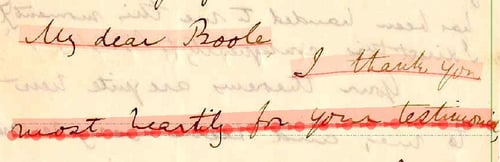 My dear Boole
I thank you
most heartily for your testimonial